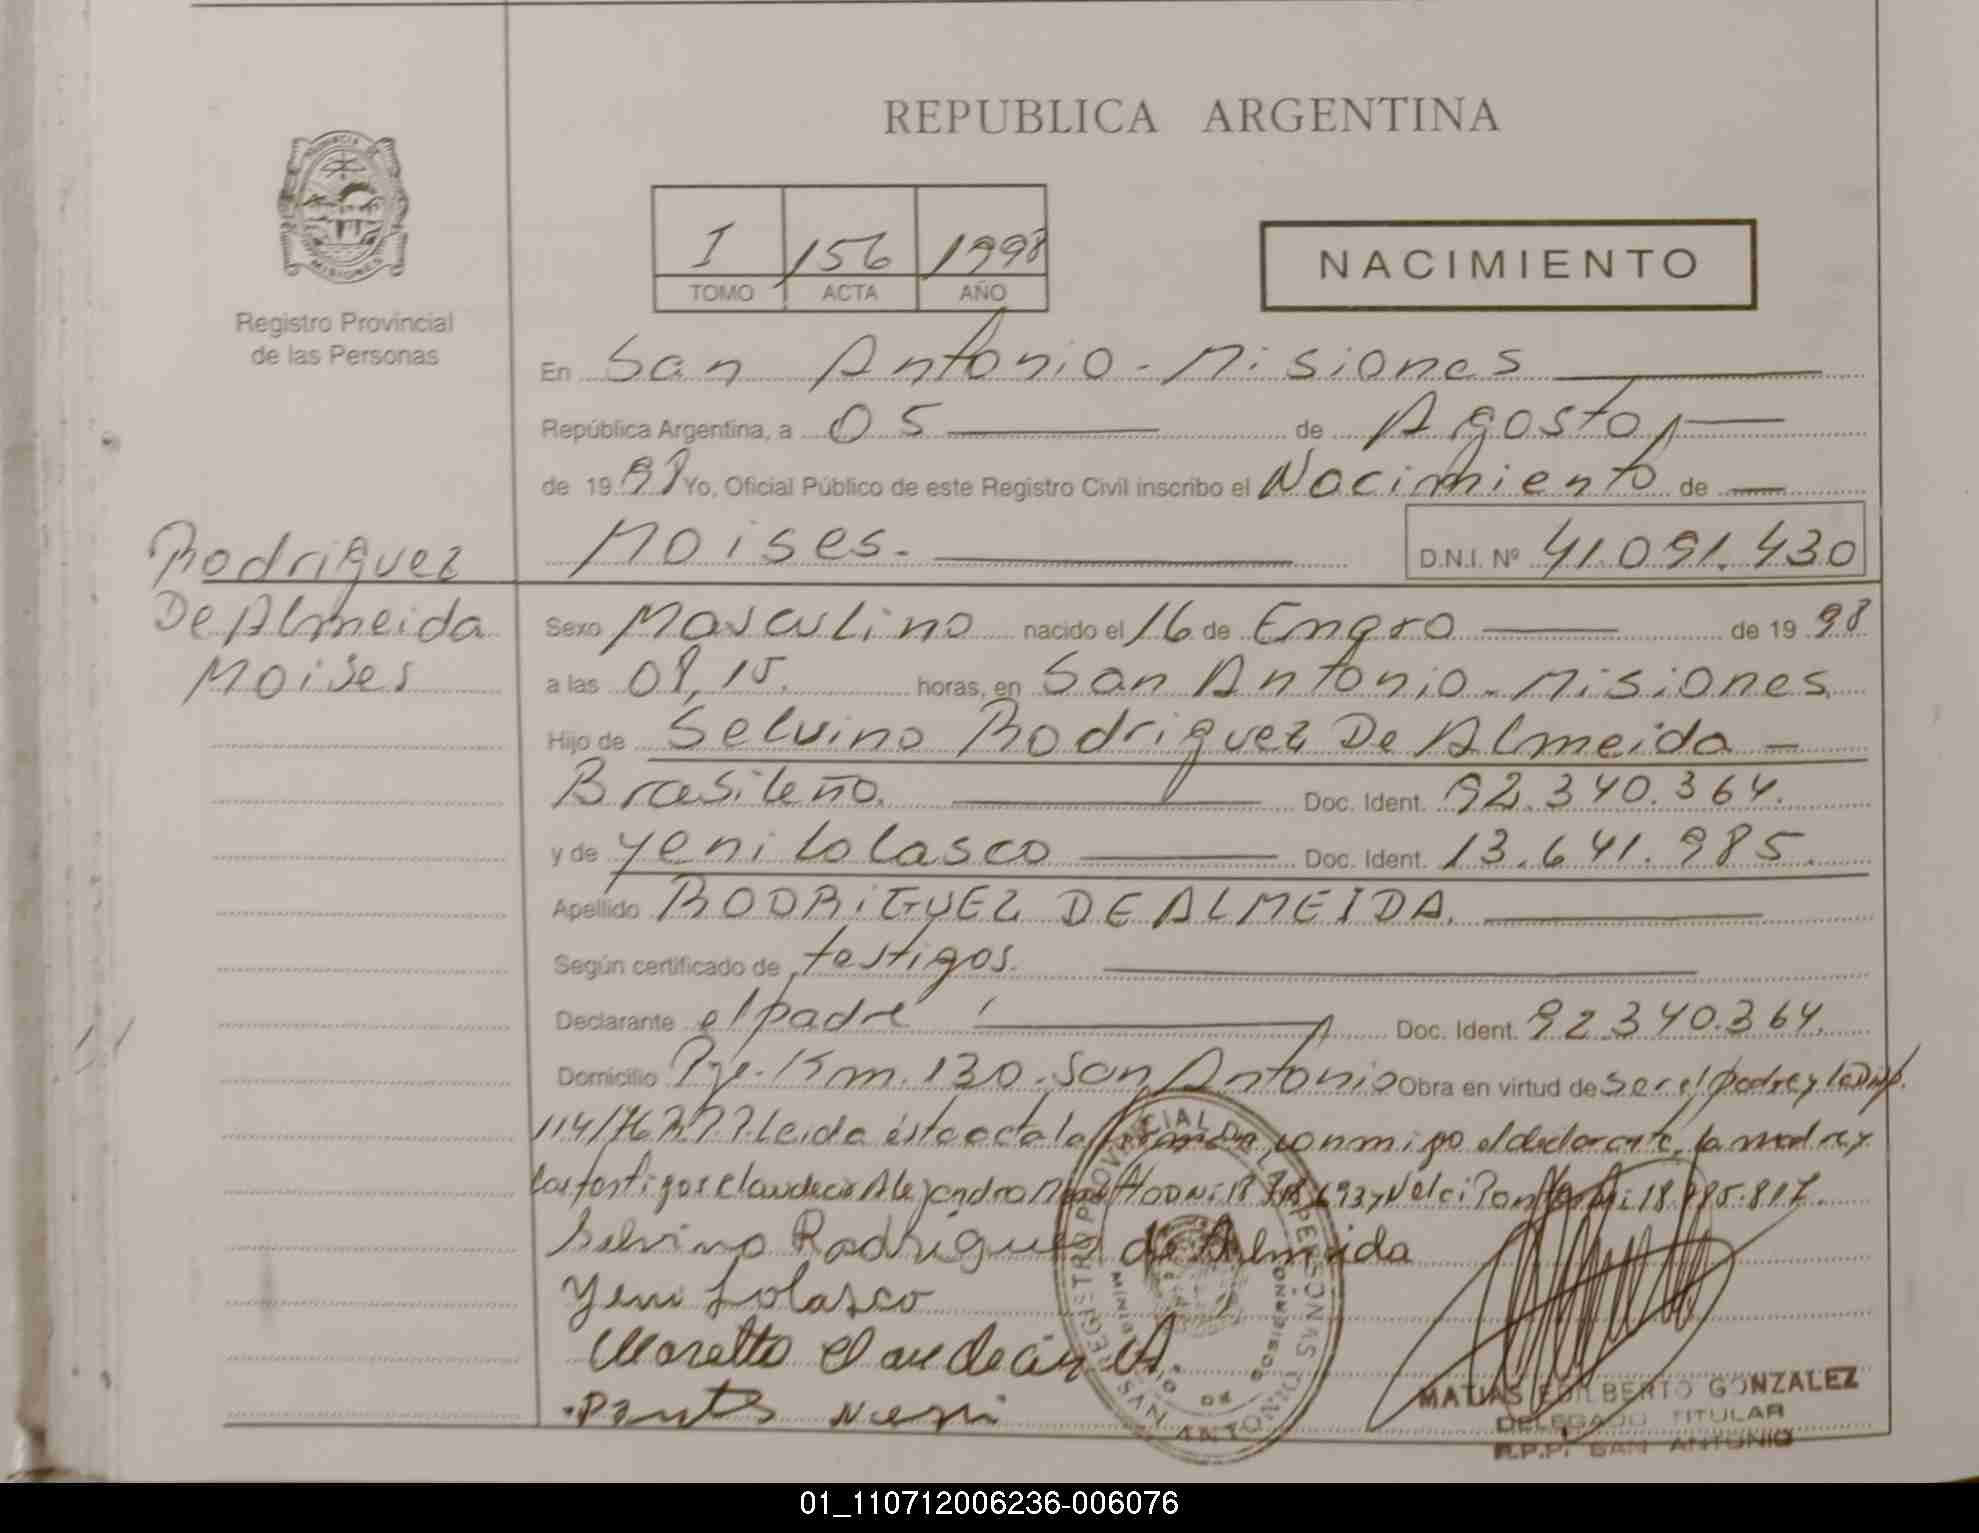 REPUBLICA ARGENTINA
PROVINCIA DE
MISIONES
Registro Provincial
de las Personas
I 156 1998
TOMO ACTA AÑO
NACIMIENTO
En San Antonio - Misiones
República Argentina, a 05 de Agosto
de 1998 Yo, Oficial Público de este Registro Civil inscribo el Nacimiento de
Moises.- D.N.I. Nº 41.091.430
Rodriguez
De Almeida
Moises
Sexo Masculino nacido el 16 de Enero de 1998
a las 08,15. horas, en San Antonio - Misiones
Hijo de Selvino Rodriguez De Almeida -
Brasileño. Doc. Ident. 92.340.364.
y de Yeni Lolasco Doc. Ident. 13.641.985.
Apellido RODRIGUEZ DE ALMEIDA.
Según certificado de testigos.
Declarante el padre Doc. Ident. 92.340.364.
Domicilio Pje. Km. 130. San Antonio Obra en virtud de ser el padre y la Disp.
114/76 Leida ésta acta la firman conmigo el declarante, la madre y
los testigos Claudecir Alejandro DNI: 18 693 y Nelci DNI: 18.
Selvino Rodrigues de Almeida
Yeni Lolasco
Moretto Claudecir A
REGISTRO PROVINCIAL DE LAS PERSONAS
SAN ANTONIO
MATIAS EDILBERTO GONZALEZ
DELEGADO TITULAR
R.P.P. SAN ANTONIO
01_110712006236-006076